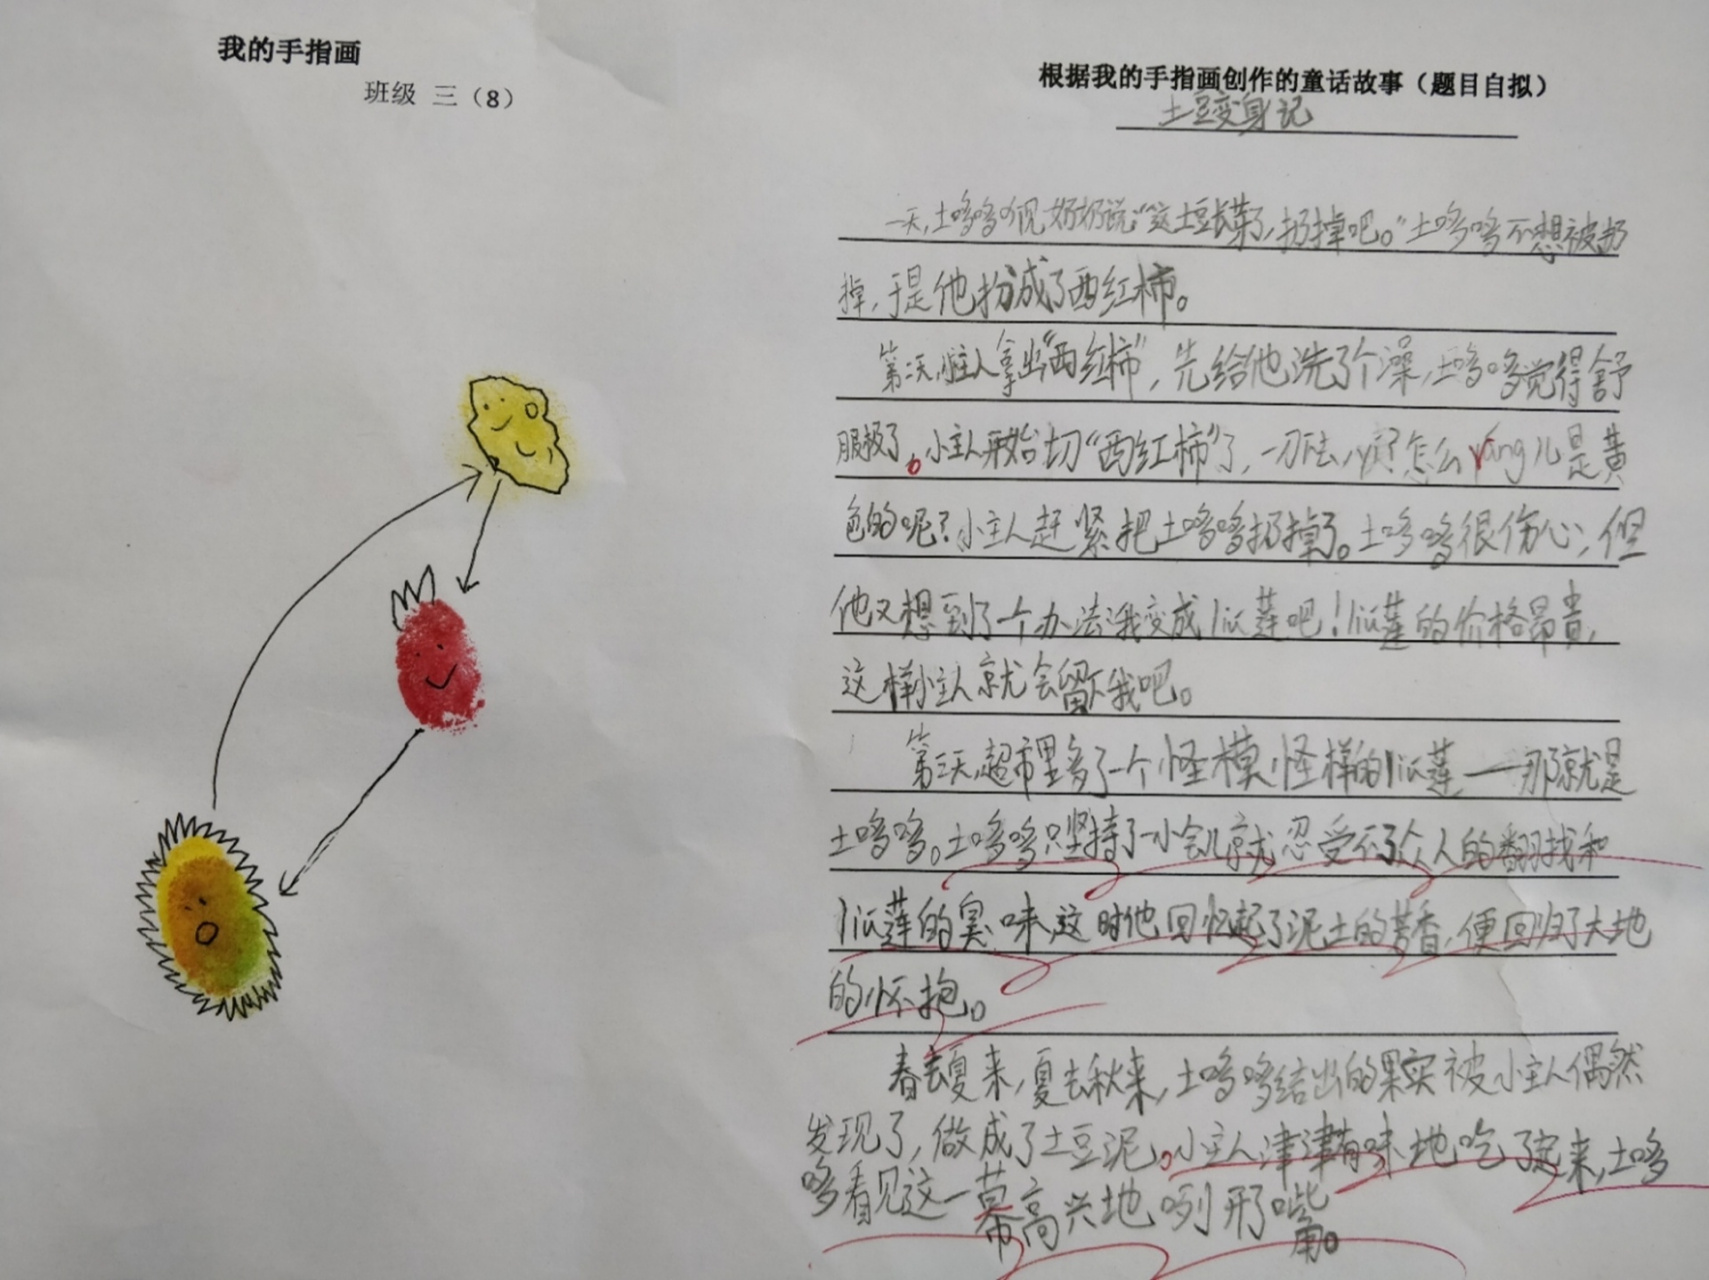 我的手指画
班级 三（8）
根据我的手指画创作的童话故事（题目自拟）
土豆变身记
一天,土哆哆听见奶奶说:"这土豆长芽了,扔掉吧。"土哆哆不想被扔
掉,于是他扮成了西红柿。
第二天,小主人拿出"西红柿",先给他洗了个澡,土哆哆觉得舒
服极了。小主人开始切"西红柿"了,一刀下去,咦?怎么ráng儿是黄
色的呢?小主人赶紧把土哆哆扔掉了。土哆哆很伤心,但
他又想到了一个办法:我变成liú莲吧!liú莲的价格昂贵,
这样小主人就会留下我吧。
第三天,超市里多了一个怪模怪样的liú莲——那就是
土哆哆。土哆哆只坚持了一小会儿就忍受不了众人的翻找和
liú莲的臭味,这时他回忆起了泥土的芳香,便回归了大地
的怀抱。
春去夏来,夏去秋来,土哆哆结出的果实被小主人偶然
发现了,做成了土豆泥。小主人津津有味地吃了起来,土哆
哆看见这一幕高兴地咧开嘴。